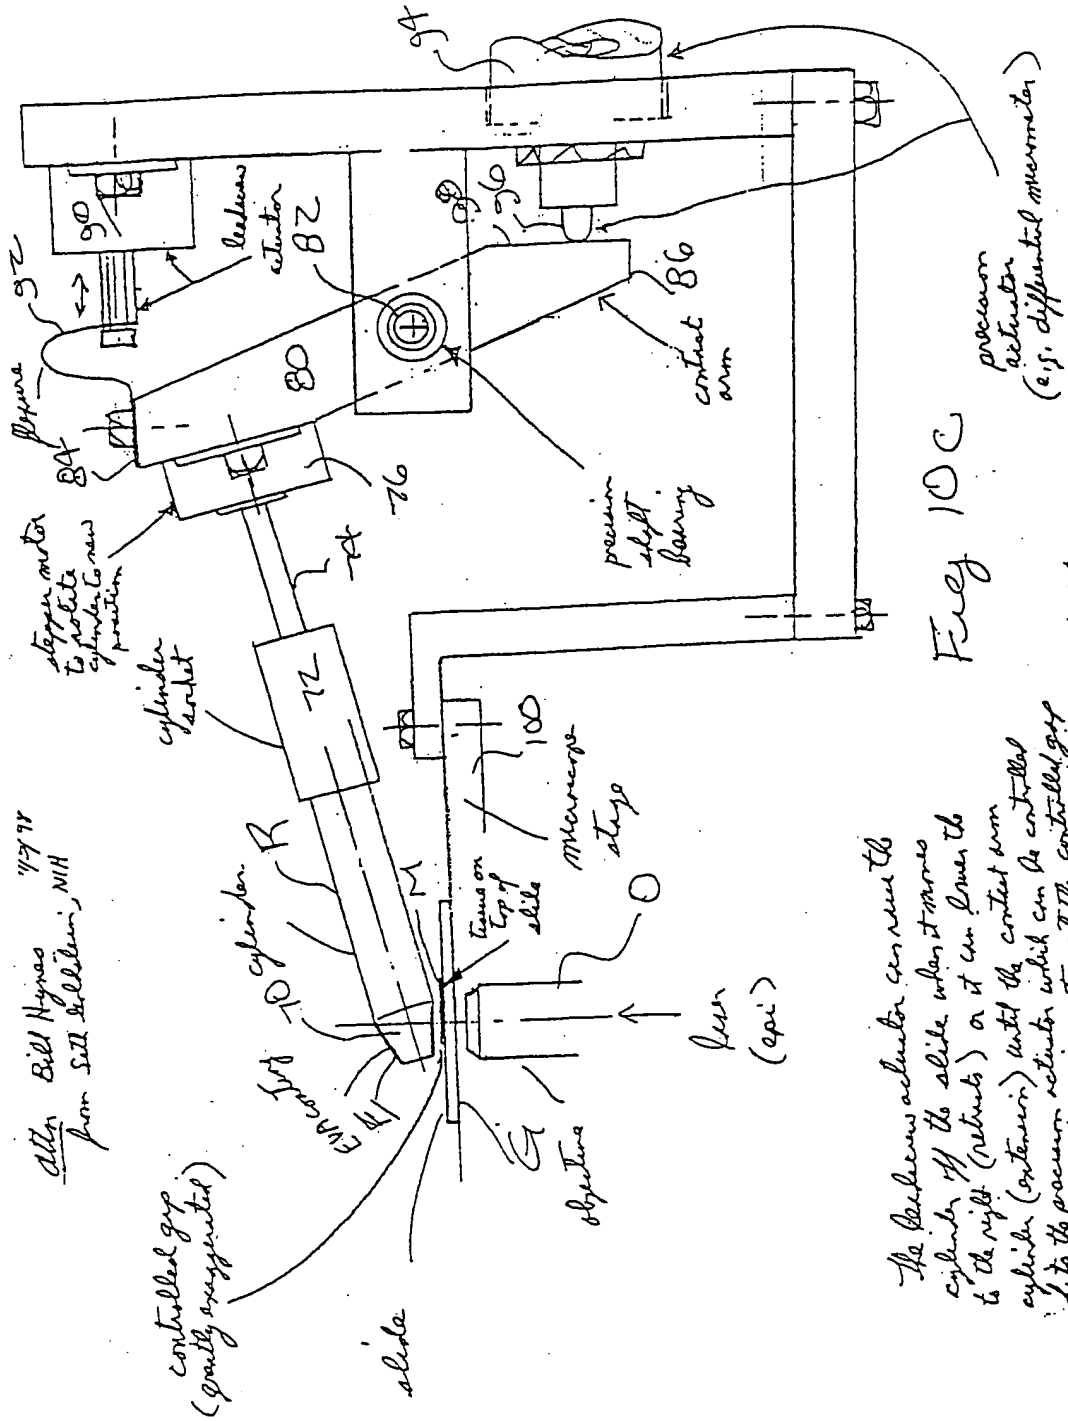 Attn Bill Hynes
from Seth Goldstein, NIH
controlled gap
(greatly exaggerated)
slide
EVA coating
70
cylinder
R
M
tissue on
top of
slide
G
objective
O
laser
(epi)
microscope
stage
100
cylinder
socket
72
74
76
stepper motor
to rotate
cylinder to new
position
84
flexure
92
90
leadscrew
actuator
82
80
precision
shaft
bearing
contact
arm
86
96
94
precision
actuator
(e.g. differential micrometer)
Fig 10C
The leadscrew actuator can raise the
cylinder off the slide when it moves
to the right (retracts) or it can lower the
cylinder (extension) until the contact arm
to the precision actuator which can be controlled
controlled gap